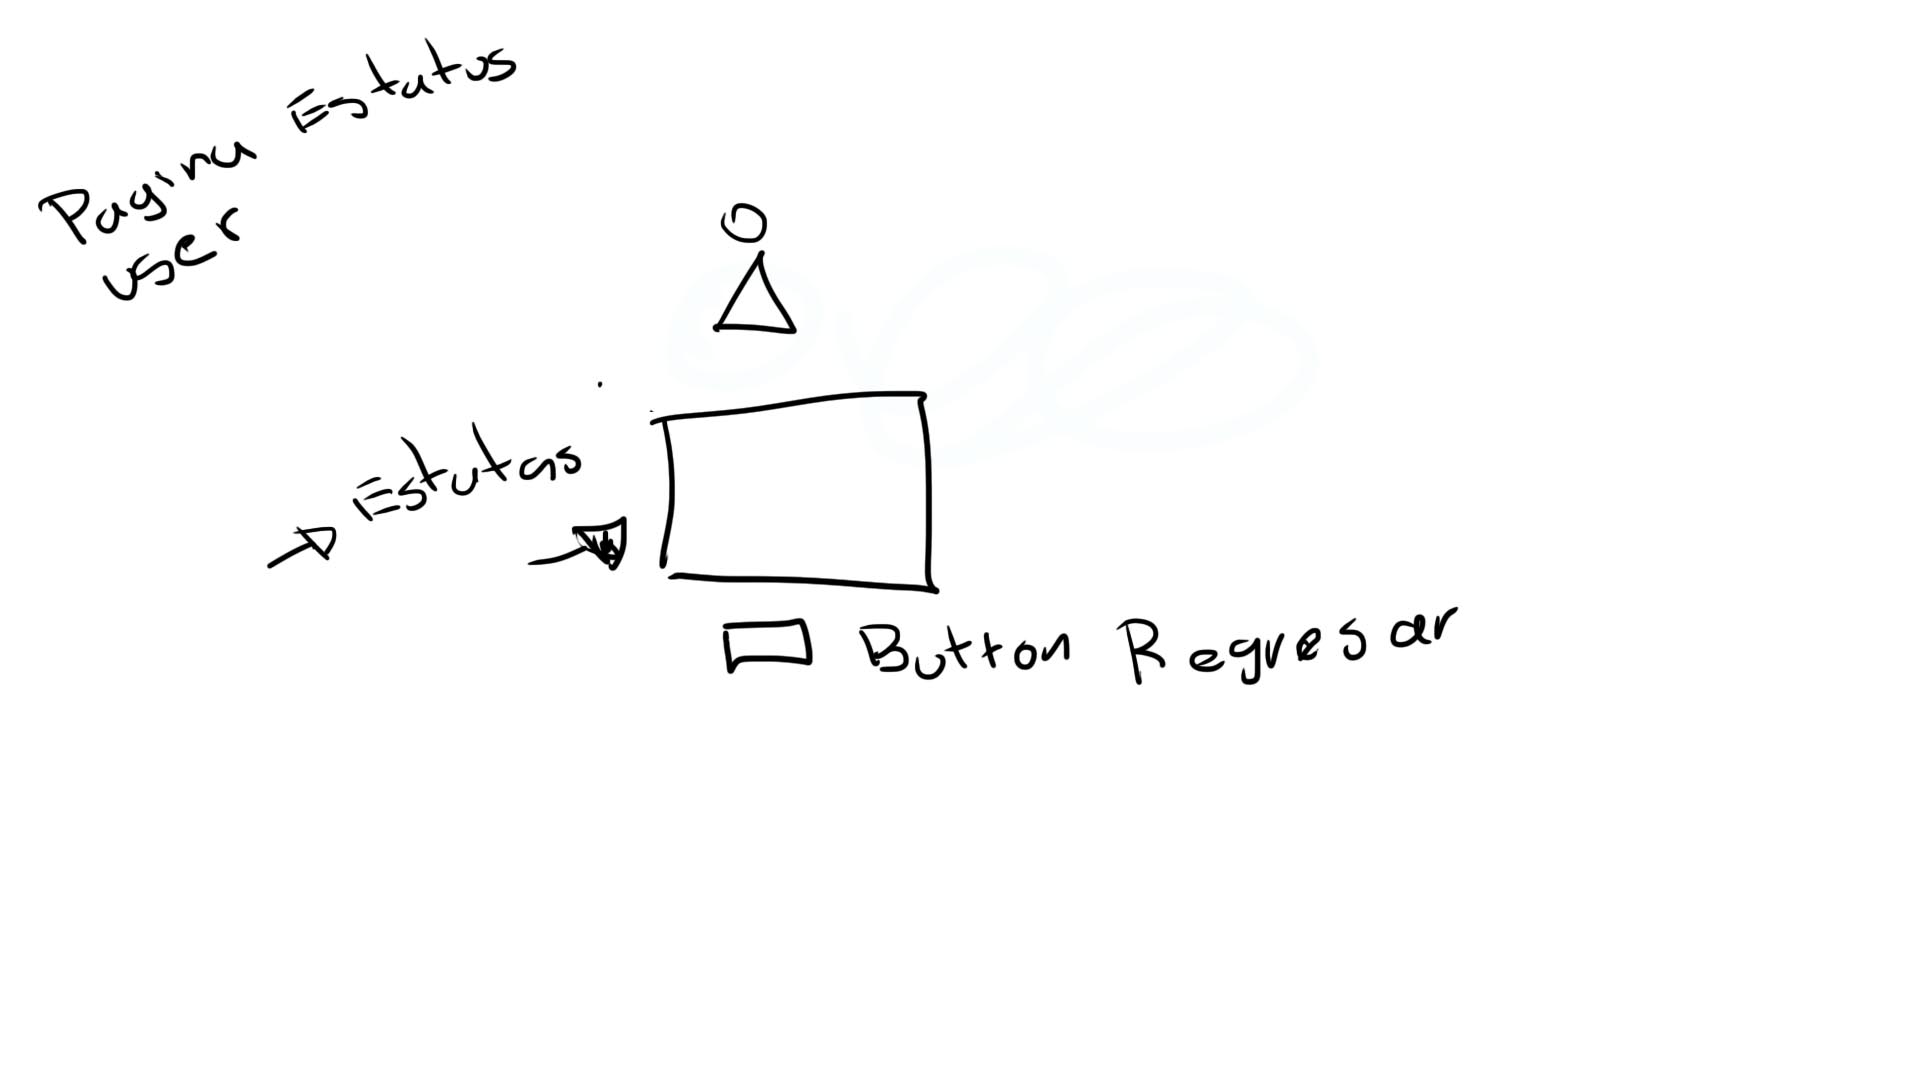 Pagina Estatus
user
Estutas
Button Regresar